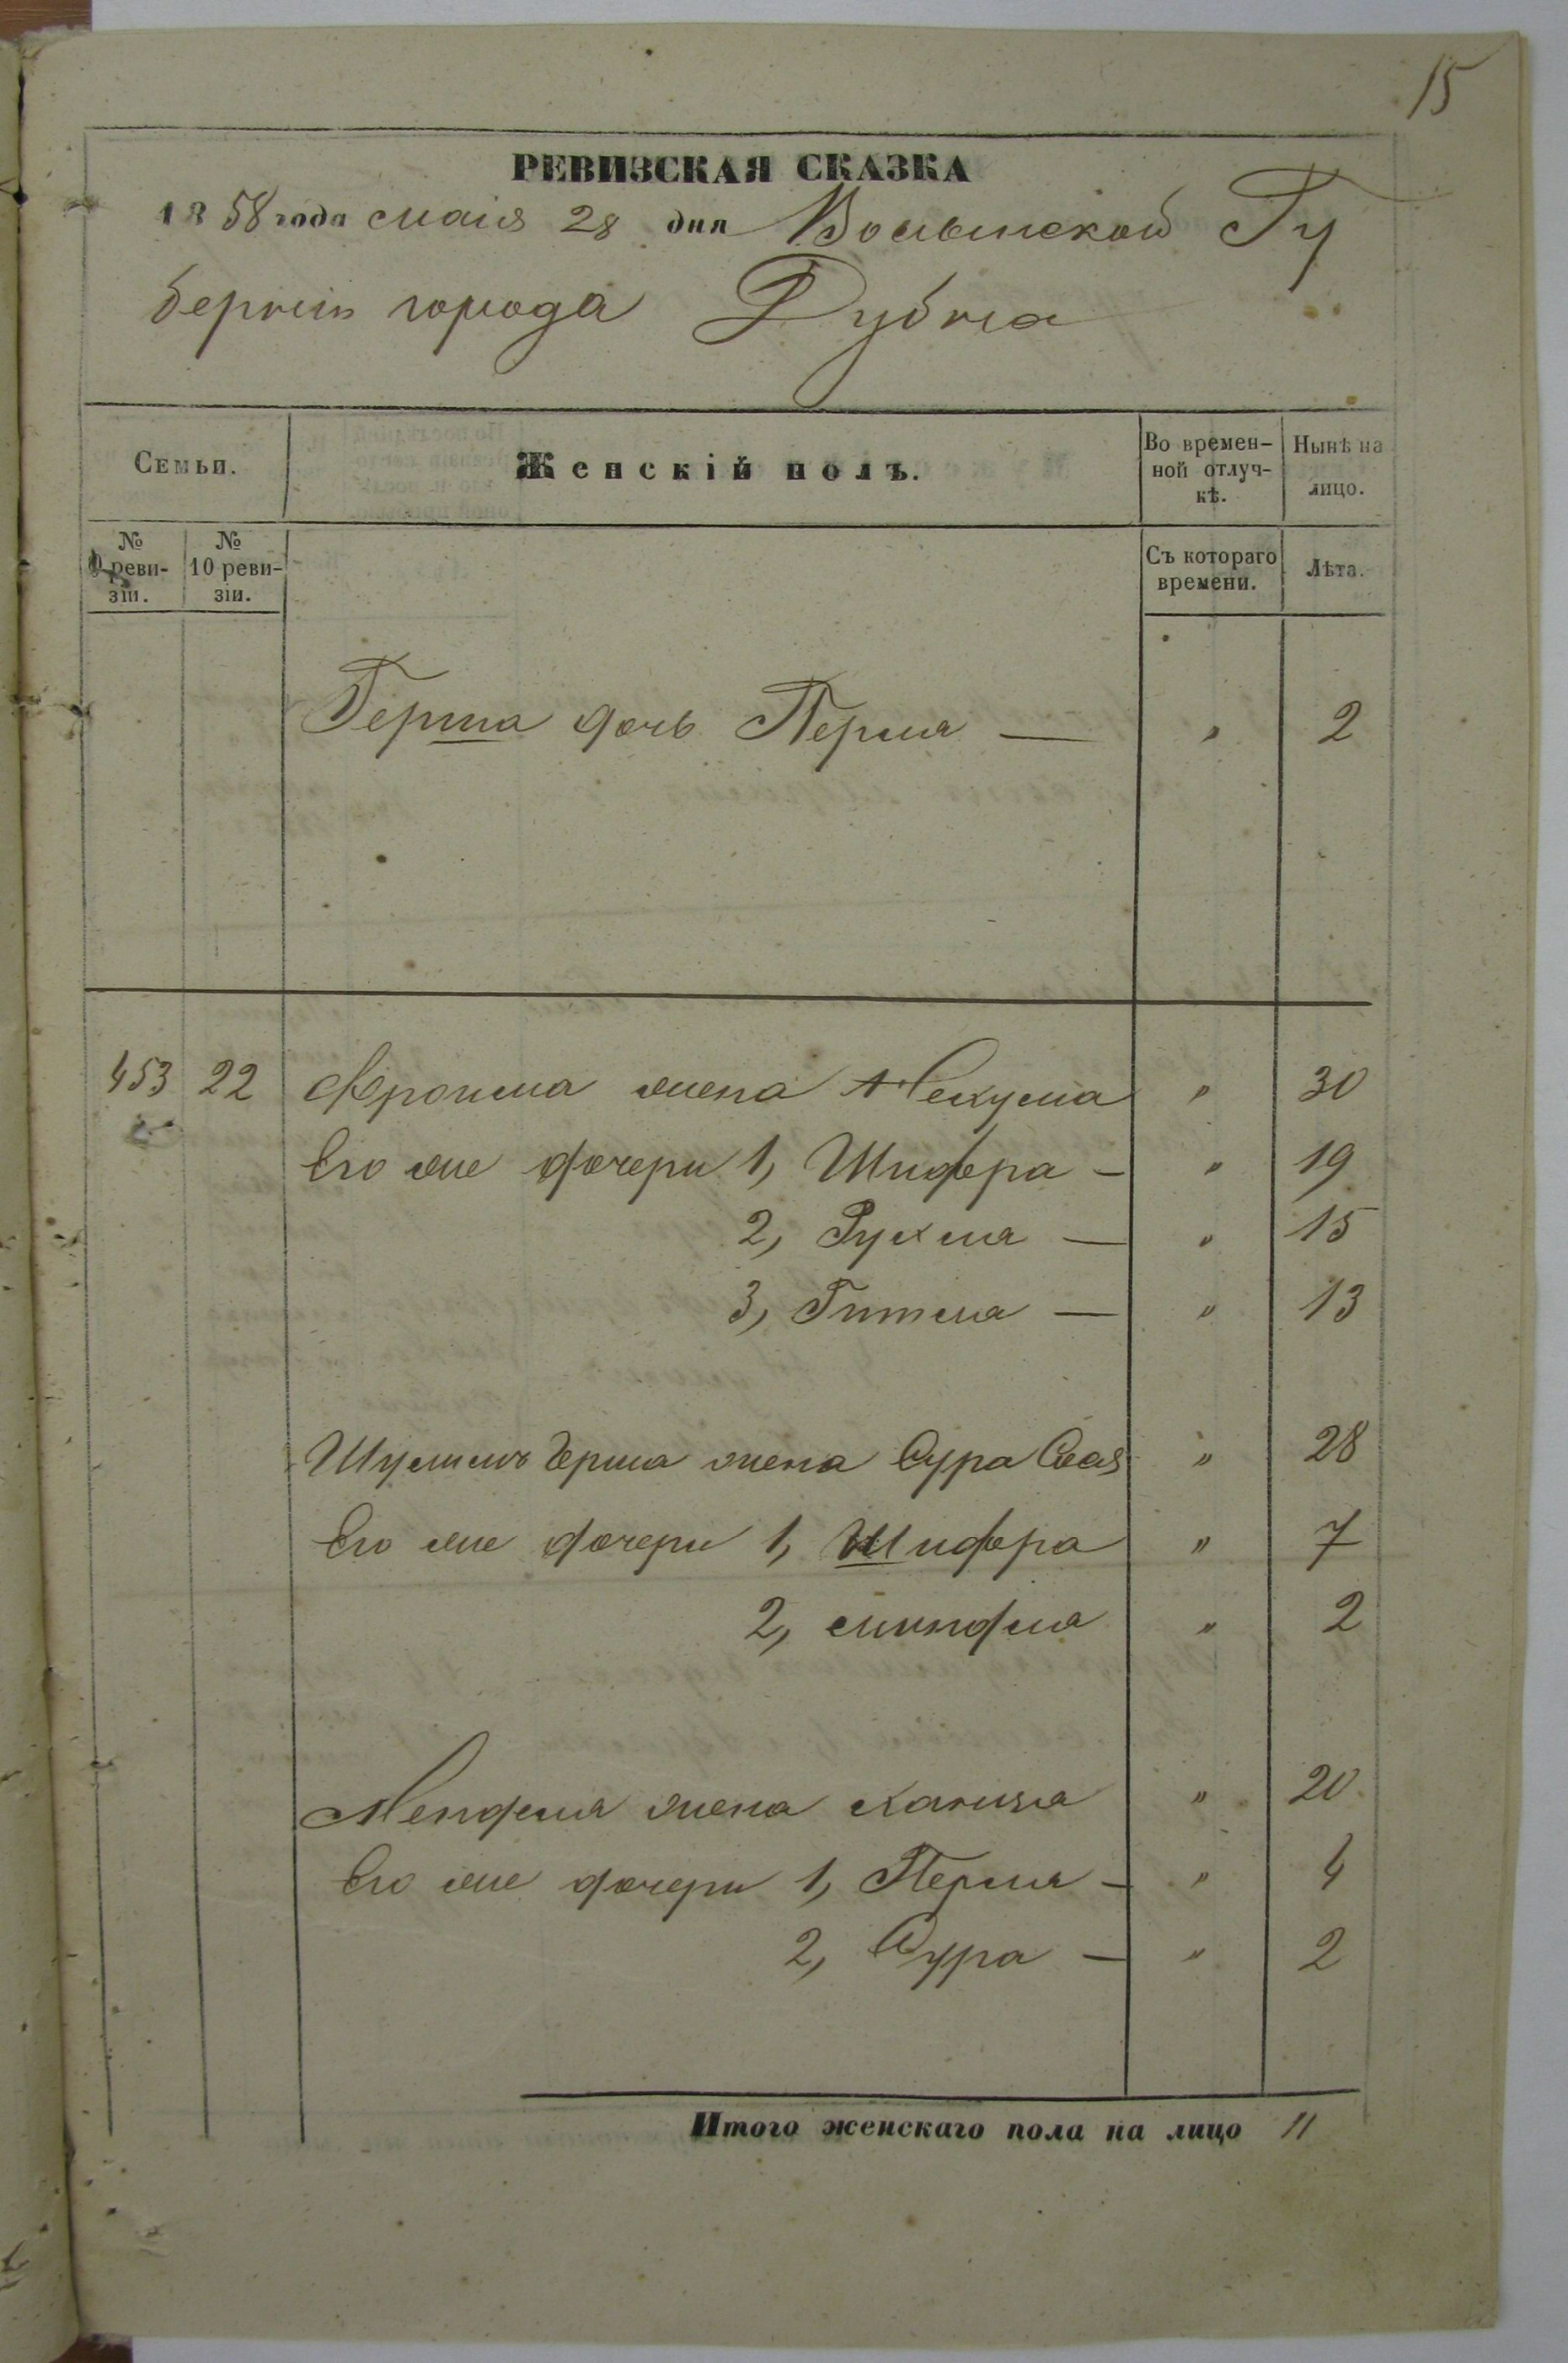 15
РЕВИЗСКАЯ СКАЗКА
1858 года маія 28 дня Волынской Гу
берніи города Дубна
Семьи. Женскій полъ. Во времен- Нынѣ на
ной отлуч- лицо.
кѣ.
№ № Съ котораго Лѣта.
9 реви- 10 реви- времени.
зіи. зіи.
Герша дочь Перля — „ 2
453 22 Фроима жена Некума „ 30
Его же дочери 1, Шифра — „ 19
2, Рухля — „ 15
3, Гитля — „ 13
Шулимъ Герша жена Сура „ 28
Его же дочери 1, Шифра „ 7
2, миндля „ 2
Менделя жена „ 20
Его же дочери 1, Перля — „ 4
2, Сура — „ 2
Итого женскаго пола на лицо 11